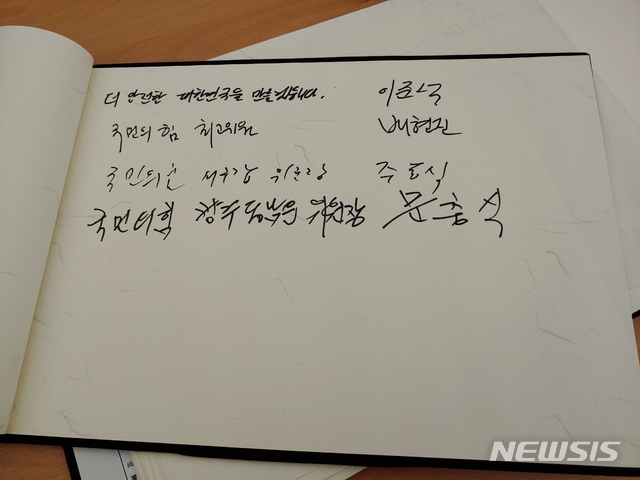 더 안전한 대한민국을 만들겠습니다. 이준석
국민의 힘 최고위원 배현진
국민의힘 서구갑 위원장 주동식
국민의힘 광주동남을 위원장 문충식
NEWSIS